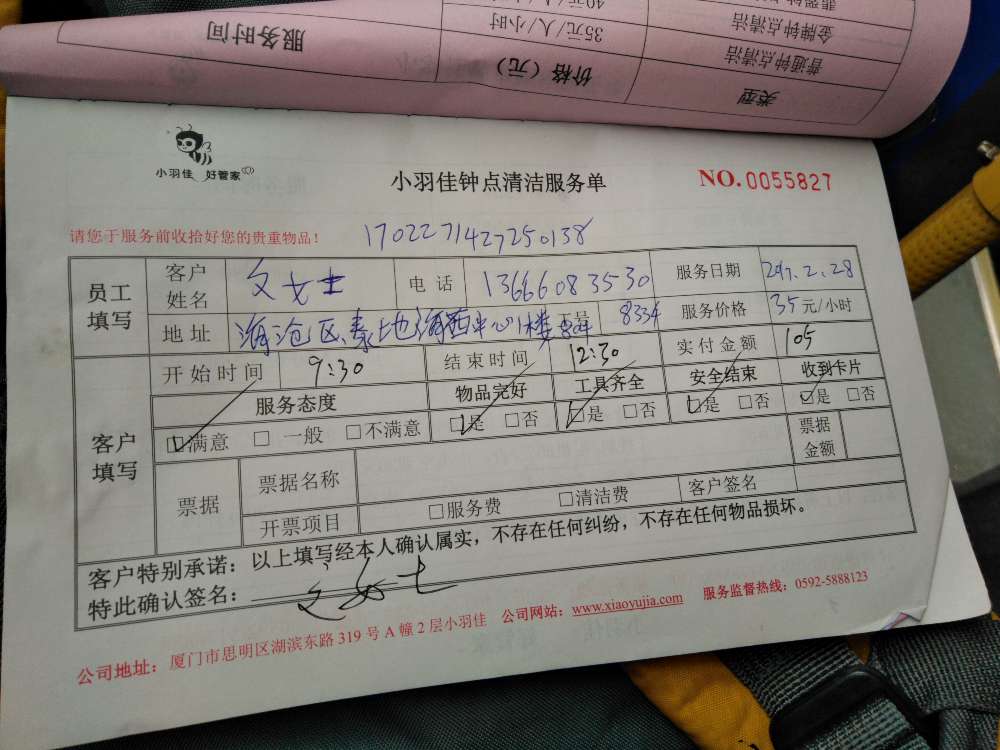 服务时间
35元/人/小时
金牌钟点清洁
价格（元）
普通钟点清洁
类型
小羽佳 好管家
小羽佳钟点清洁服务单
NO.0055827
请您于服务前收拾好您的贵重物品！
1702271427250138
员工填写
客户姓名 文女士 电话 13666083530 服务日期 2017.2.28
地址 海沧区泰地海西中心1楼 8334 服务价格 35元/小时
客户填写
开始时间 9:30 结束时间 12:30 实付金额 105
服务态度 物品完好 工具齐全 安全结束 收到卡片
☑满意 □一般 □不满意 ☑是 □否 ☑是 □否 ☑是 □否 ☑是 □否
票据 票据名称 票据金额
开票项目 □服务费 □清洁费 客户签名
客户特别承诺：以上填写经本人确认属实，不存在任何纠纷，不存在任何物品损坏。
特此确认签名：文女士
公司地址：厦门市思明区湖滨东路319号A幢2层小羽佳 公司网站：www.xiaoyujia.com 服务监督热线：0592-5888123